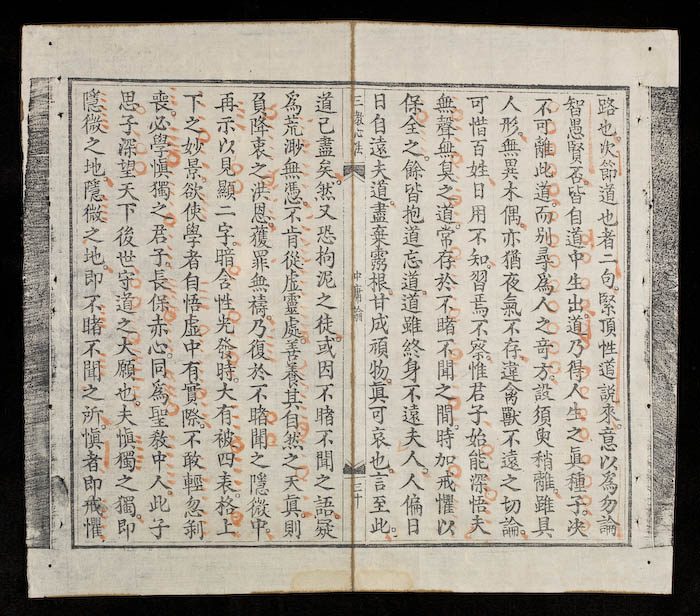 路也。次節道也者二句。緊頂性道說來。意以為勿論
智愚賢否皆自道中生出。道乃得人生之真種子。决
不可離此道。而別尋為人之奇方。設須臾稍離。雖具
人形。無異木偶。亦猶夜氣不存。違禽獸不遠之切論。
可惜百姓日用不知。習焉不察。惟君子始能深悟夫
無聲無臭之道。常存於不睹不聞之間。時加戒懼以
保全之。餘皆抱道忘道。道雖終身不遠夫人。人偏日
日自遠夫道。盡棄靈根。甘成頑物。真可哀也。言至此。
三教心法
中庸論
三十
道已盡矣。然又恐拘泥之徒。或因不睹不聞之語。疑
為荒渺無憑。不肯從虛靈處。善養其自然之天真。則
負降衷之洪恩。獲罪無禱。乃復於不睹聞之隱微中。
再示以見顯二字。暗含性光發時。大有被四表。格上
下之妙景。欲使學者自悟虛中有實際。不敢輕忽剎
喪。必學慎獨之君子。長保赤心。同為聖教中人。此子
思子深望天下後世守道之大願也。夫慎獨之獨。即
隱微之地。隱微之地。即不睹不聞之所。慎者即戒懼